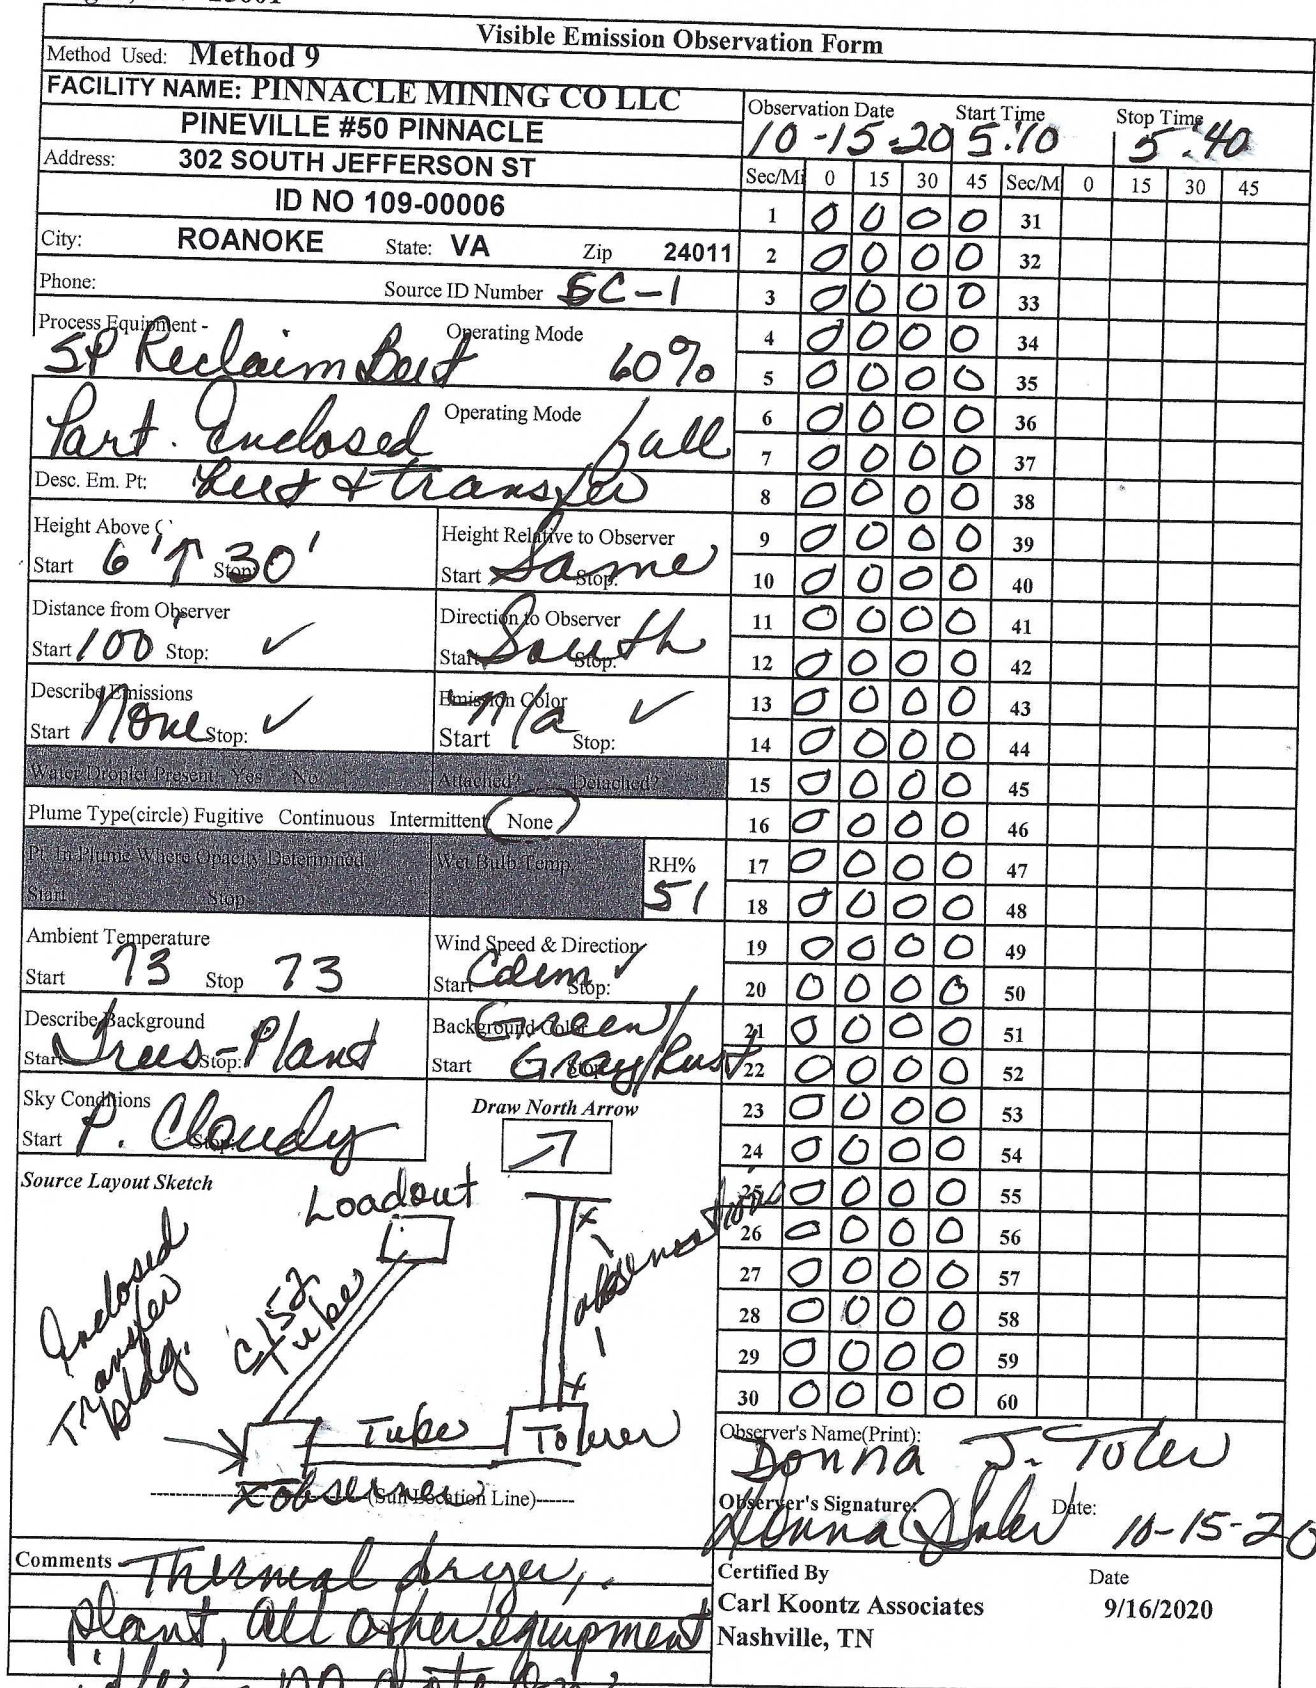 Visible Emission Observation Form
Method Used: Method 9
FACILITY NAME: PINNACLE MINING CO LLC
PINEVILLE #50 PINNACLE
Address: 302 SOUTH JEFFERSON ST
ID NO 109-00006
City: ROANOKE State: VA Zip 24011
Phone: Source ID Number SC-1
Process Equipment - Operating Mode
SP Reclaim Belt 60%
Part. Enclosed Operating Mode full
Desc. Em. Pt: Belt & transfer
Height Above G Height Relative to Observer
Start 6' ↑ Stop: 30' Start Same Stop:
Distance from Observer Direction to Observer
Start 100' Stop: ✓ Start South Stop:
Describe Emissions Emission Color
Start None Stop: ✓ Start n/a Stop: ✓
Water Droplet Present? Yes No Attached? Detached?
Plume Type(circle) Fugitive Continuous Intermittent None
Pt. In Plume Where Opacity Determined Wet Bulb Temp. RH%
Start Stop 51
Ambient Temperature Wind Speed & Direction
Start 73 Stop 73 Start Calm Stop: ✓
Describe Background Background Color Green/
Start Trees-Plant Stop: Start Gray/Rust Stop
Sky Conditions
Start P. Cloudy Stop:
Draw North Arrow
Source Layout Sketch
Loadout
Enclosed
Transfer
bldg.
C152
Tube
observations
Tube
Tower
x observer
(Sun Location Line)
Comments Thermal dryer,
plant, all other equipment
Observation Date Start Time Stop Time
10-15-20 5:10 5:40
Sec/Mi 0 15 30 45 Sec/M 0 15 30 45
1 0 0 0 0 31
2 0 0 0 0 32
3 0 0 0 0 33
4 0 0 0 0 34
5 0 0 0 0 35
6 0 0 0 0 36
7 0 0 0 0 37
8 0 0 0 0 38
9 0 0 0 0 39
10 0 0 0 0 40
11 0 0 0 0 41
12 0 0 0 0 42
13 0 0 0 0 43
14 0 0 0 0 44
15 0 0 0 0 45
16 0 0 0 0 46
17 0 0 0 0 47
18 0 0 0 0 48
19 0 0 0 0 49
20 0 0 0 0 50
21 0 0 0 0 51
22 0 0 0 0 52
23 0 0 0 0 53
24 0 0 0 0 54
25 0 0 0 0 55
26 0 0 0 0 56
27 0 0 0 0 57
28 0 0 0 0 58
29 0 0 0 0 59
30 0 0 0 0 60
Observer's Name(Print):
Donna J. Toler
Observer's Signature: Donna J Toler Date: 10-15-20
Certified By Date
Carl Koontz Associates 9/16/2020
Nashville, TN